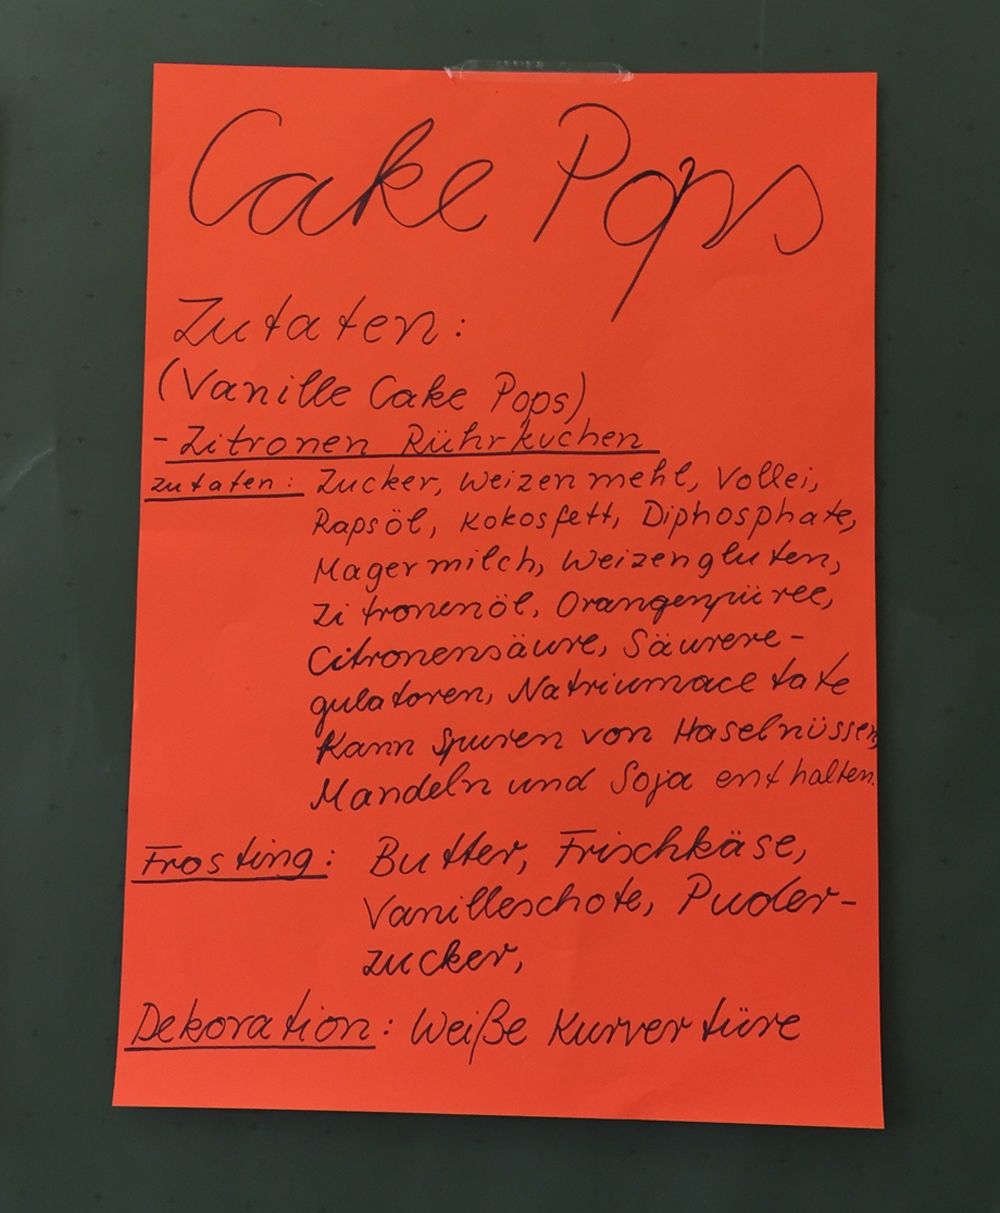 Cake Pops
Zutaten:
(Vanille Cake Pops)
- Zitronen Rührkuchen
Zutaten: Zucker, Weizenmehl, Vollei,
Rapsöl, Kokosfett, Diphosphate,
Magermilch, Weizengluten,
Zitronenöl, Orangenpüree,
Citronensäure, Säurere-
gulatoren, Natriumacetate
Kann Spuren von Haselnüssen,
Mandeln und Soja enthalten.
Frosting: Butter, Frischkäse,
Vanilleschote, Puder-
zucker,
Dekoration: Weiße Kurvertüre